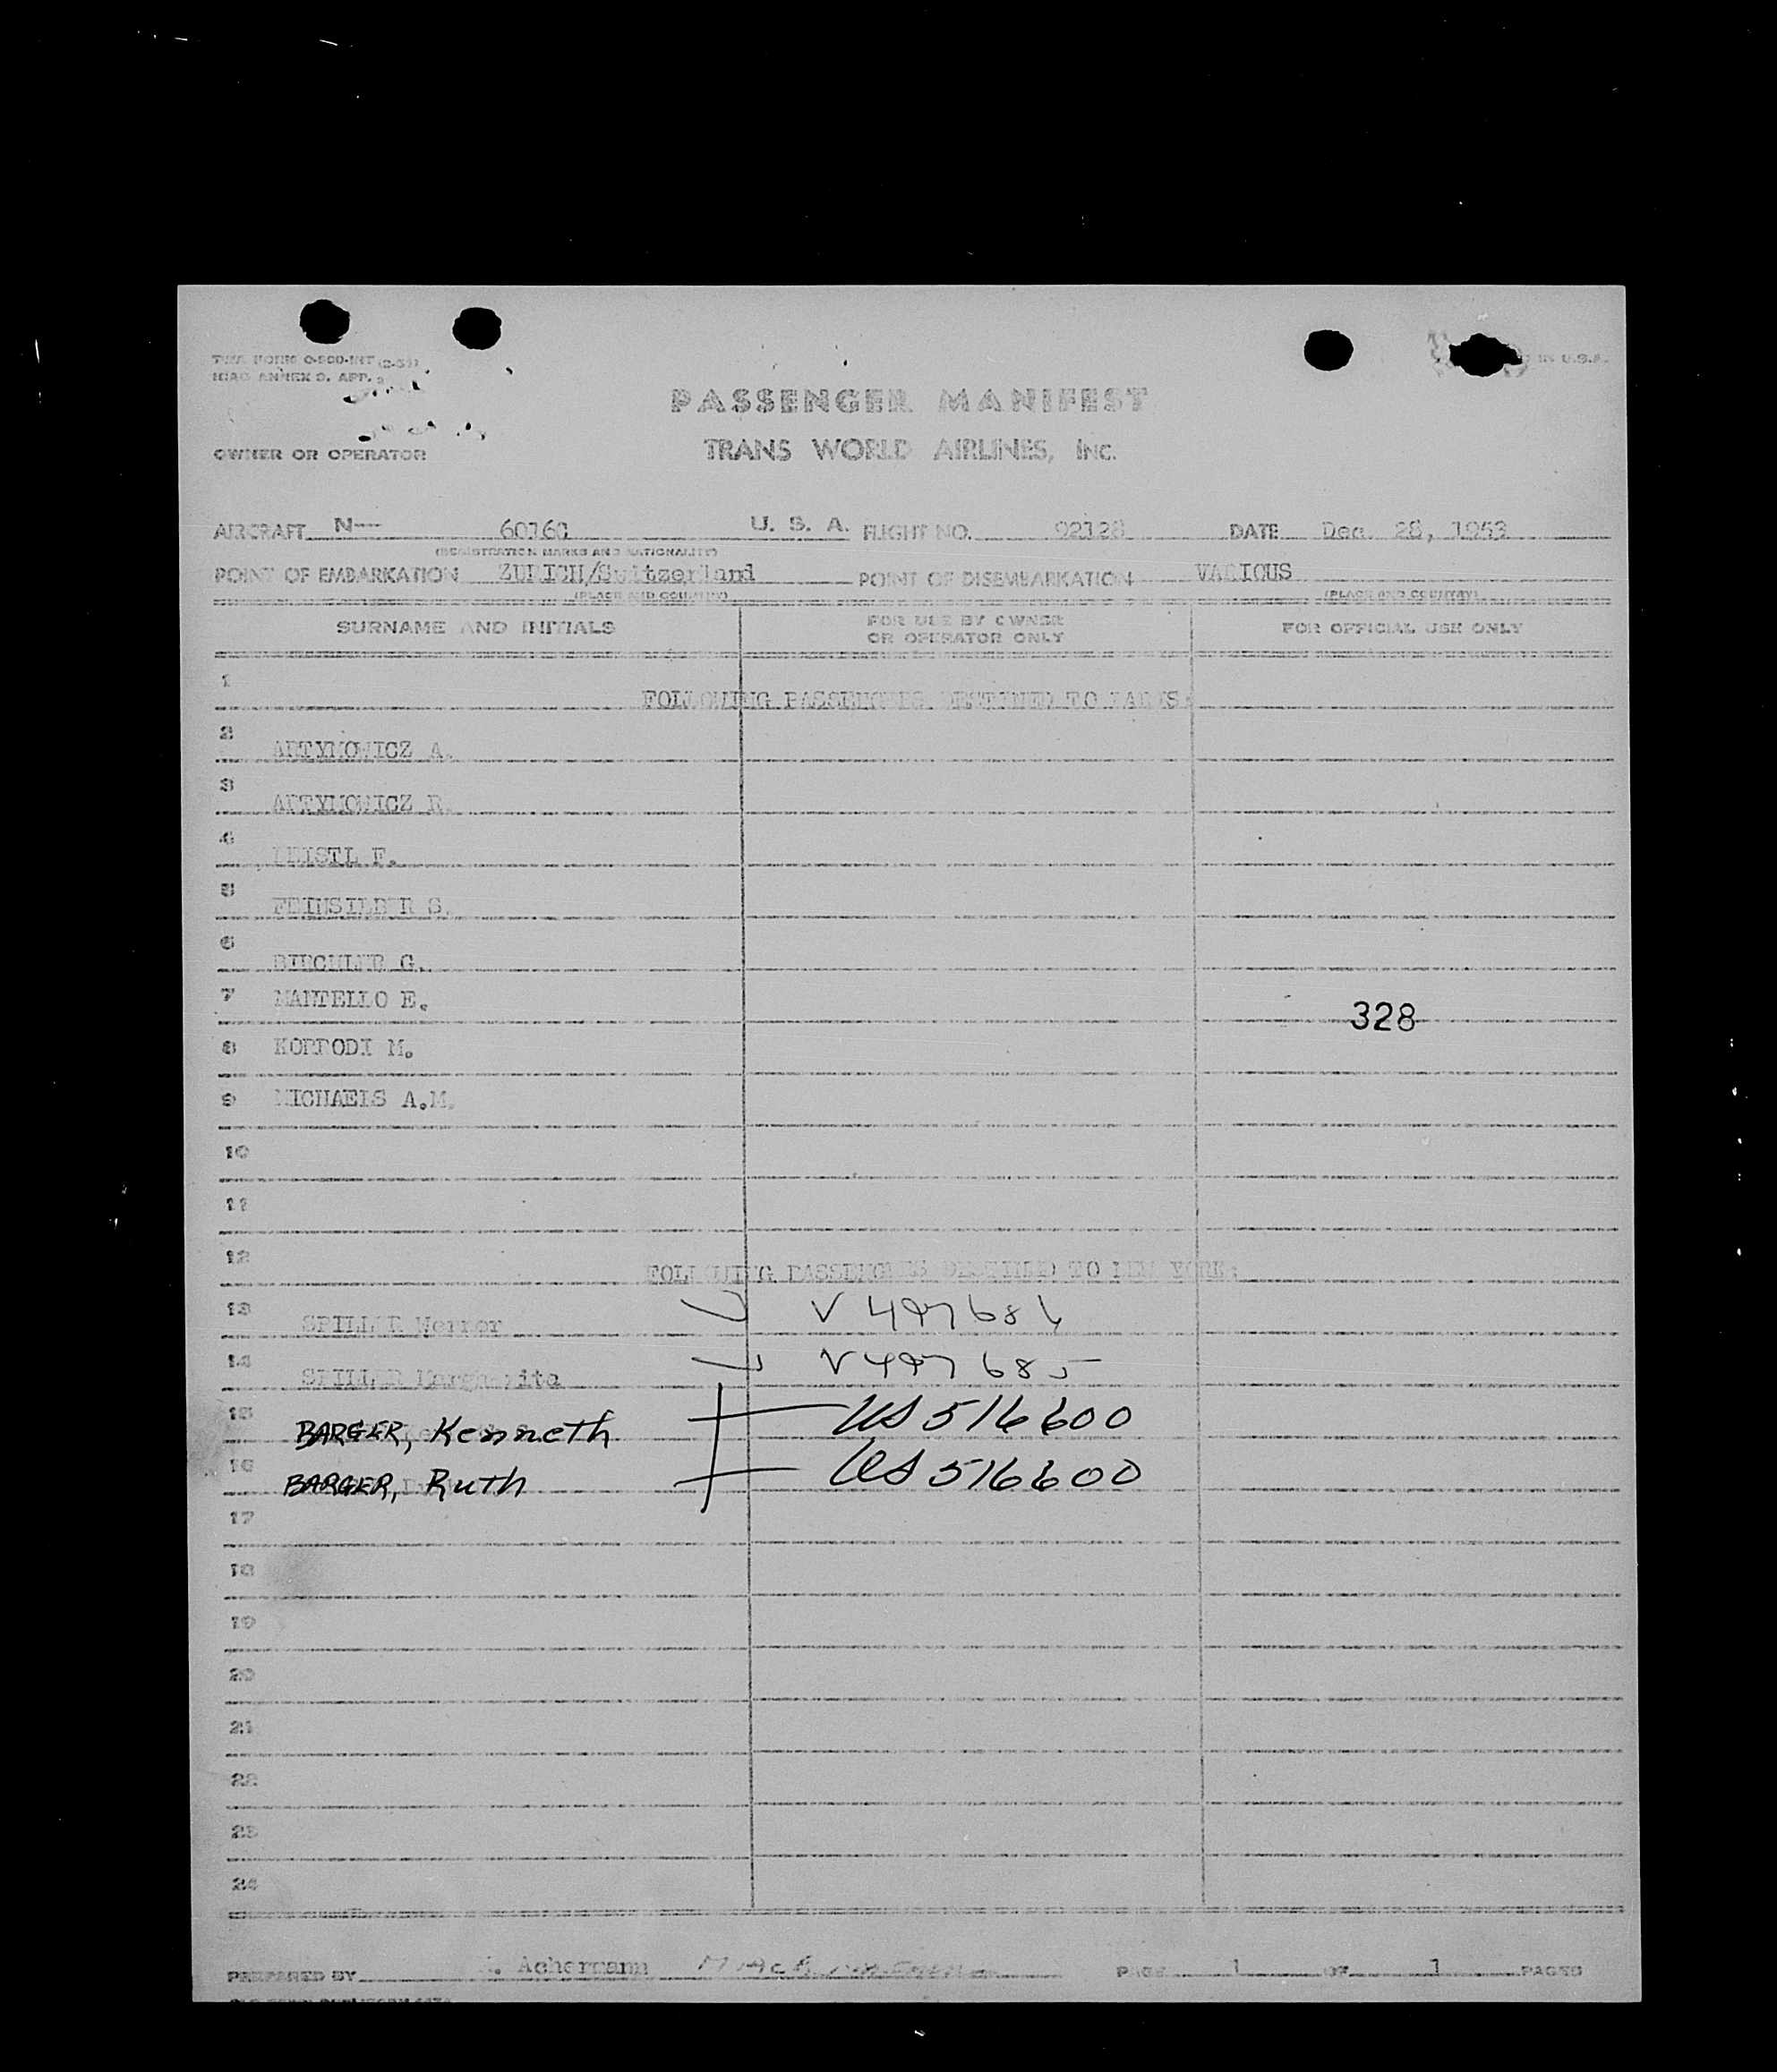 TWA FORM O-500-INT (2-51)
ICAO ANNEX 9. APP.
IN U.S.A.
PASSENGER MANIFEST
OWNER OR OPERATOR
TRANS WORLD AIRLINES, INC.
AIRCRAFT N— U. S. A. FLIGHT NO. 92128 DATE Dec. 28, 1953
(REGISTRATION MARKS AND NATIONALITY)
POINT OF EMBARKATION ZURICH/Switzerland POINT OF DISEMBARKATION VARIOUS
(PLACE AND COUNTRY) (PLACE AND COUNTRY)
SURNAME AND INITIALS FOR USE BY OWNER OR OPERATOR ONLY FOR OFFICIAL USE ONLY
1 FOLLOWING PASSENGERS DESTINED TO PARIS:
2 ARTYMOWICZ A.
3 ARTYMOWICZ R.
4 F.
5 FEINSILBER S.
6 G.
7 MANTELLO E.
328
8 M.
9 MICHAELS A.M.
10
11
12 FOLLOWING PASSENGERS DESTINED TO NEW YORK:
13 SPILLER Werner V 497686
14 SPILLER Margherita V 497685
15 BARGER, Kenneth US 516600
16 BARGER, Ruth US 516600
17
18
19
20
21
22
23
24
PREPARED BY Achermann PAGE 1 OF 1 PAGES